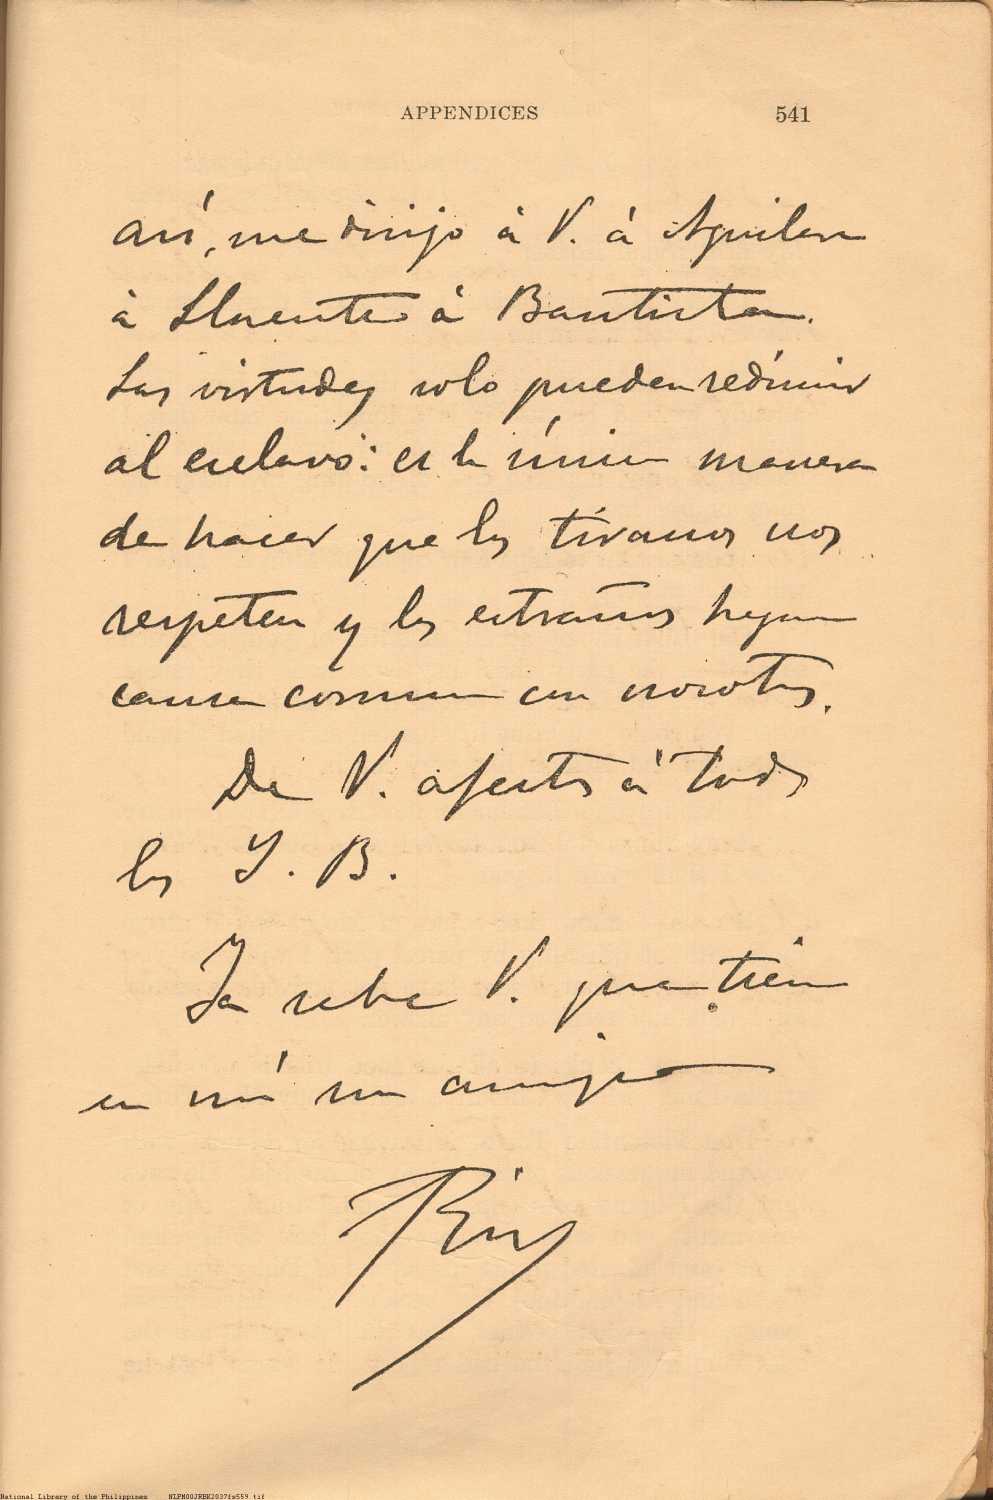 APPENDICES 541
así, me dirijo á V. á Aguilera
á Llorente á Bautista.
Las virtudes solo pueden redimir
al esclavo: es la única manera
de hacer que los tiranos nos
respeten y los estraños hagan
causa comun con nosotros.
De V. afecto á todos
los I. B.
Ya sabe V. que tiene
en mí un amigo
Rizal
National Library of the Philippines NLPM00JRBK2037fs559.tif